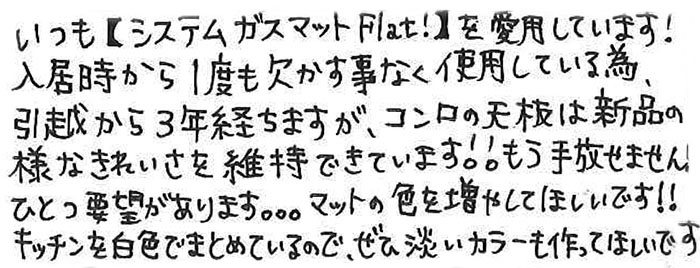 いつも【システムガスマットFlat!】を愛用しています!
入居時から1度も欠かす事なく使用している為、
引越から3年経ちますが、コンロの天板は新品の
様なきれいさを維持できています!!もう手放せません
ひとつ要望があります。。。マットの色を増やしてほしいです!!
キッチンを白色でまとめているので、ぜひ淡いカラーも作ってほしいです